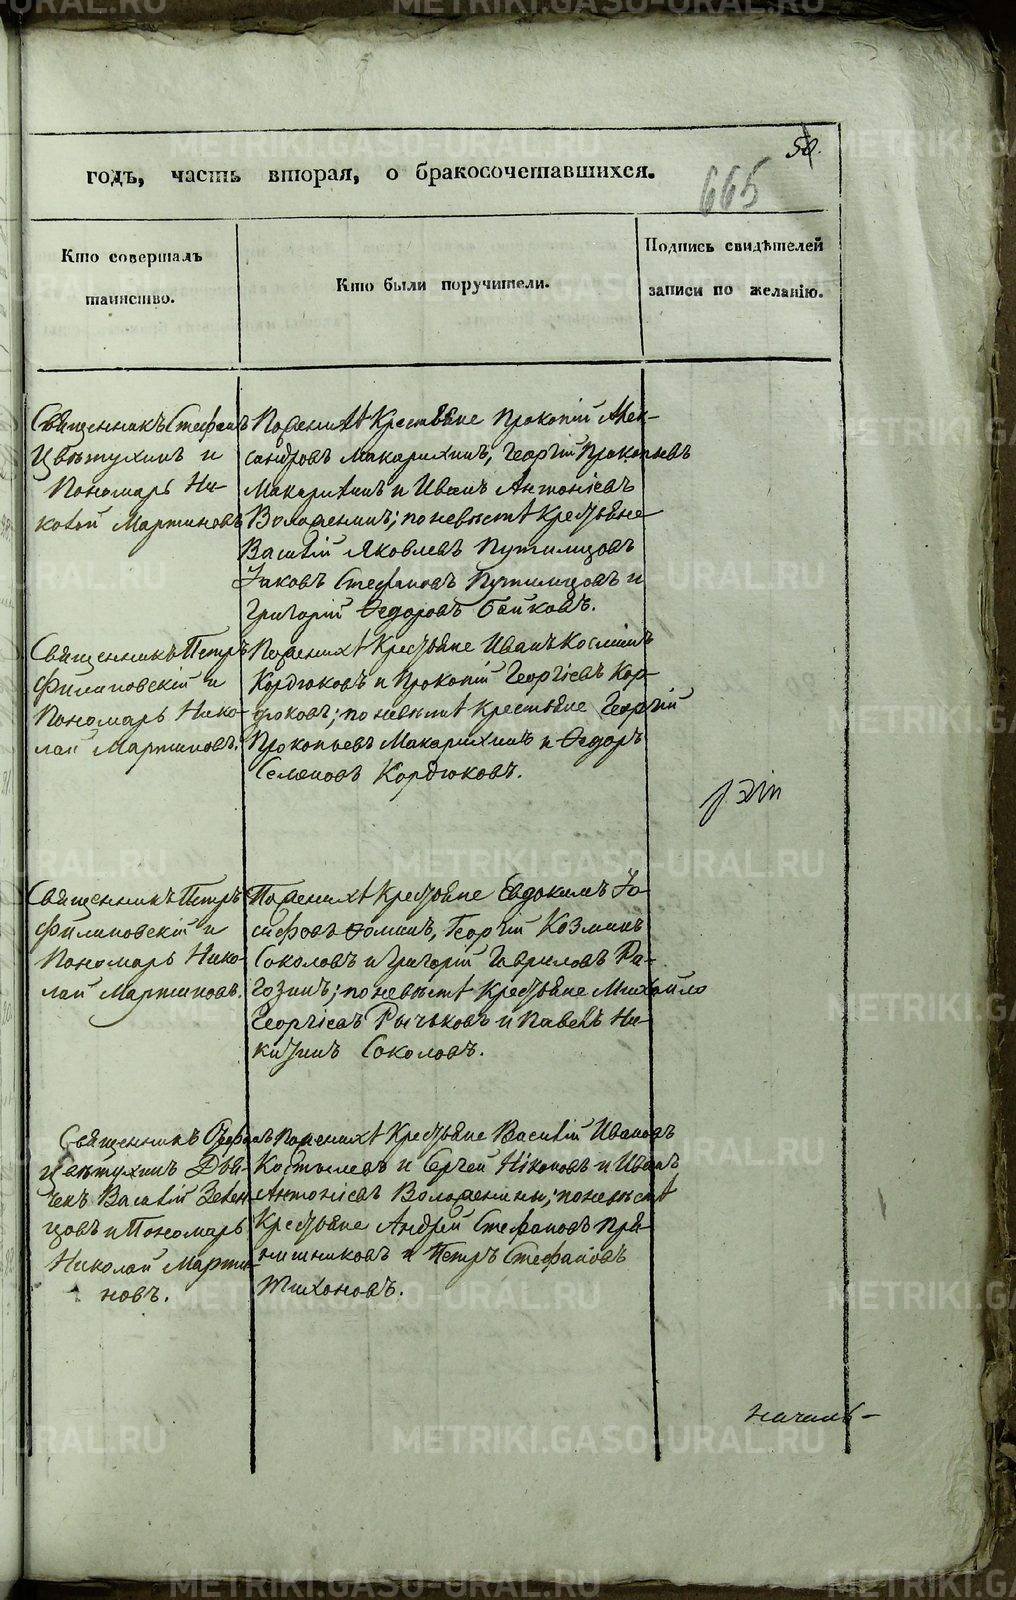 METRIKI.GASO-URAL.RU
50.
665
годъ, часть вторая, о бракосочетавшихся.
Кто совершалъ
таинство.
Кто были поручители.
Подпись свидѣтелей
записи по желанію.
Священникъ Стефанъ
Цвѣтухинъ и
Пономарь Ни-
колай Мартиновъ
По женихѣ Крестьяне Прокопій Алек-
сандровъ Макарихинъ, Георгій Прокопьевъ
Макарихинъ и Иванъ Антоніевъ
Воложенинъ; по невѣстѣ Крестьяне
Василій Яковлевъ Путимцовъ
Іаковъ Стефановъ Путимцовъ и
Григорій Ѳедоровъ Байковъ.
Священникъ Петръ
Филиповскій и
Пономарь Нико-
лай Мартиновъ.
По женихѣ Крестьяне Иванъ Косминъ
Кордюковъ и Прокопій Георгіевъ Кор-
дюковъ; по невѣстѣ Крестьяне Георгій
Прокопьевъ Макарихинъ и Ѳедоръ
Семеновъ Кордюковъ.
Священникъ Петръ
Филиповскій и
Пономарь Нико-
лай Мартиновъ.
По женихѣ Крестьяне Евдокимъ Іо-
сифовъ Ѳоминъ, Георгій Козминъ
Соколовъ и Григорій Гавриловъ Ра-
гозинъ; по невѣстѣ Крестьяне Михайло
Георгіевъ Рычьковъ и Павелъ Ни-
китинъ Соколовъ.
Священникъ Стефанъ
Цвѣтухинъ Дья-
чекъ Василій Зелен-
цовъ и Пономарь
Николай Марти-
новъ.
По женихѣ Крестьяне Василій Ивановъ
Костылевъ и Сергей Никоновъ и Иванъ
Антоніевъ Воложенины; по невѣстѣ
Крестьяне Андрей Стефановъ Пря-
нишниковъ и Петръ Стефановъ
Тихоновъ.